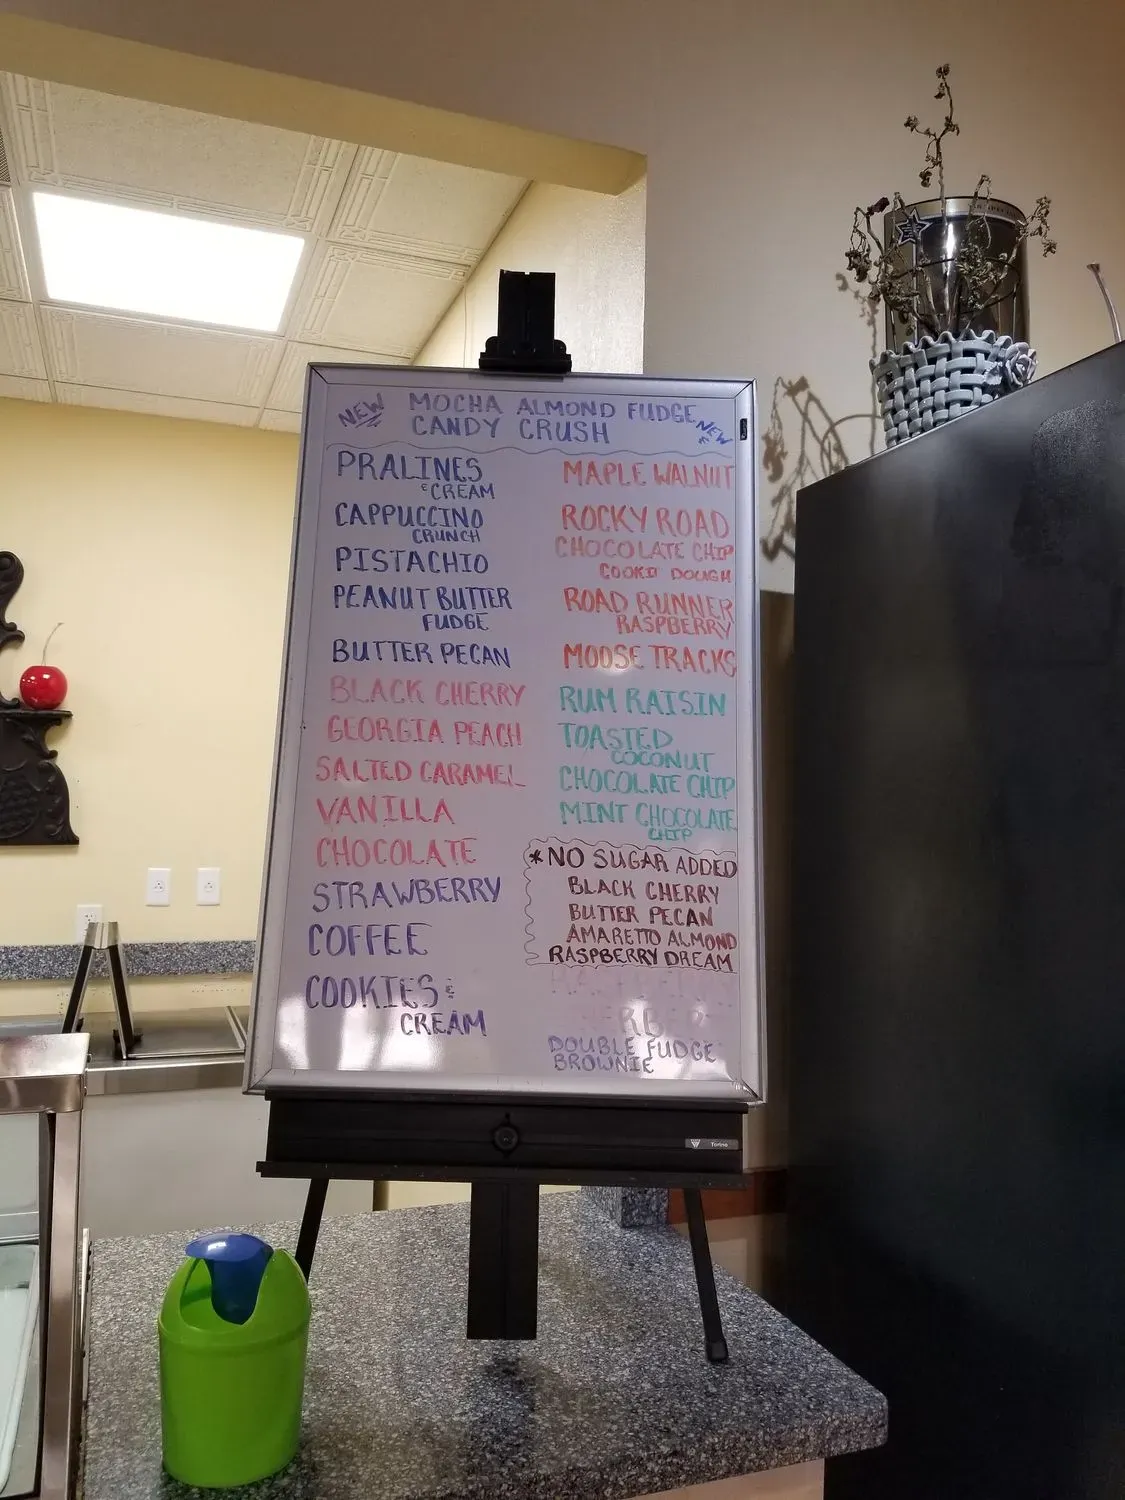 NEW MOCHA ALMOND FUDGE NEW
CANDY CRUSH
PRALINES
& CREAM
CAPPUCCINO
CRUNCH
PISTACHIO
PEANUT BUTTER
FUDGE
BUTTER PECAN
BLACK CHERRY
GEORGIA PEACH
SALTED CARAMEL
VANILLA
CHOCOLATE
STRAWBERRY
COFFEE
COOKIES &
CREAM
MAPLE WALNUT
ROCKY ROAD
CHOCOLATE CHIP
COOKIE DOUGH
ROAD RUNNER
RASPBERRY
MOOSE TRACKS
RUM RAISIN
TOASTED
COCONUT
CHOCOLATE CHIP
MINT CHOCOLATE
CHIP
*NO SUGAR ADDED
BLACK CHERRY
BUTTER PECAN
AMARETTO ALMOND
RASPBERRY DREAM
DOUBLE FUDGE
BROWNIE
Torino